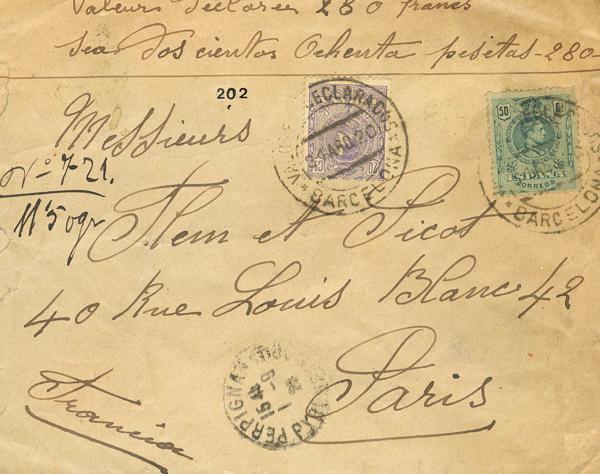 Valeurs déclarées 280 francs
sea dos cientos Ochenta pesetas-280-
202
DECLARADOS
BARCELONA
50
CORREOS
BARCELONA
Messieurs
Nº 7-21.
11'50 gr
Flem et Picot
40 Rue Louis Blanc 42
Paris
Francia
PERPIGNAN
15 4